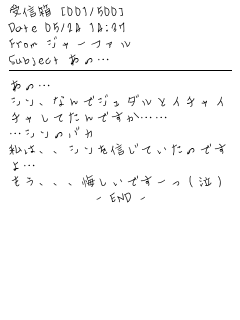 受信箱 [001/500]
Date 05/24 14:37
From ジャーファル
Subject あの…
あの…
シン、なんでジュダルとイチャイ
チャしてたんですか……
…シンのバカ
私は、、シンを信じていたのです
よ…
もう、、、悔しいですーっ(泣)
- END -